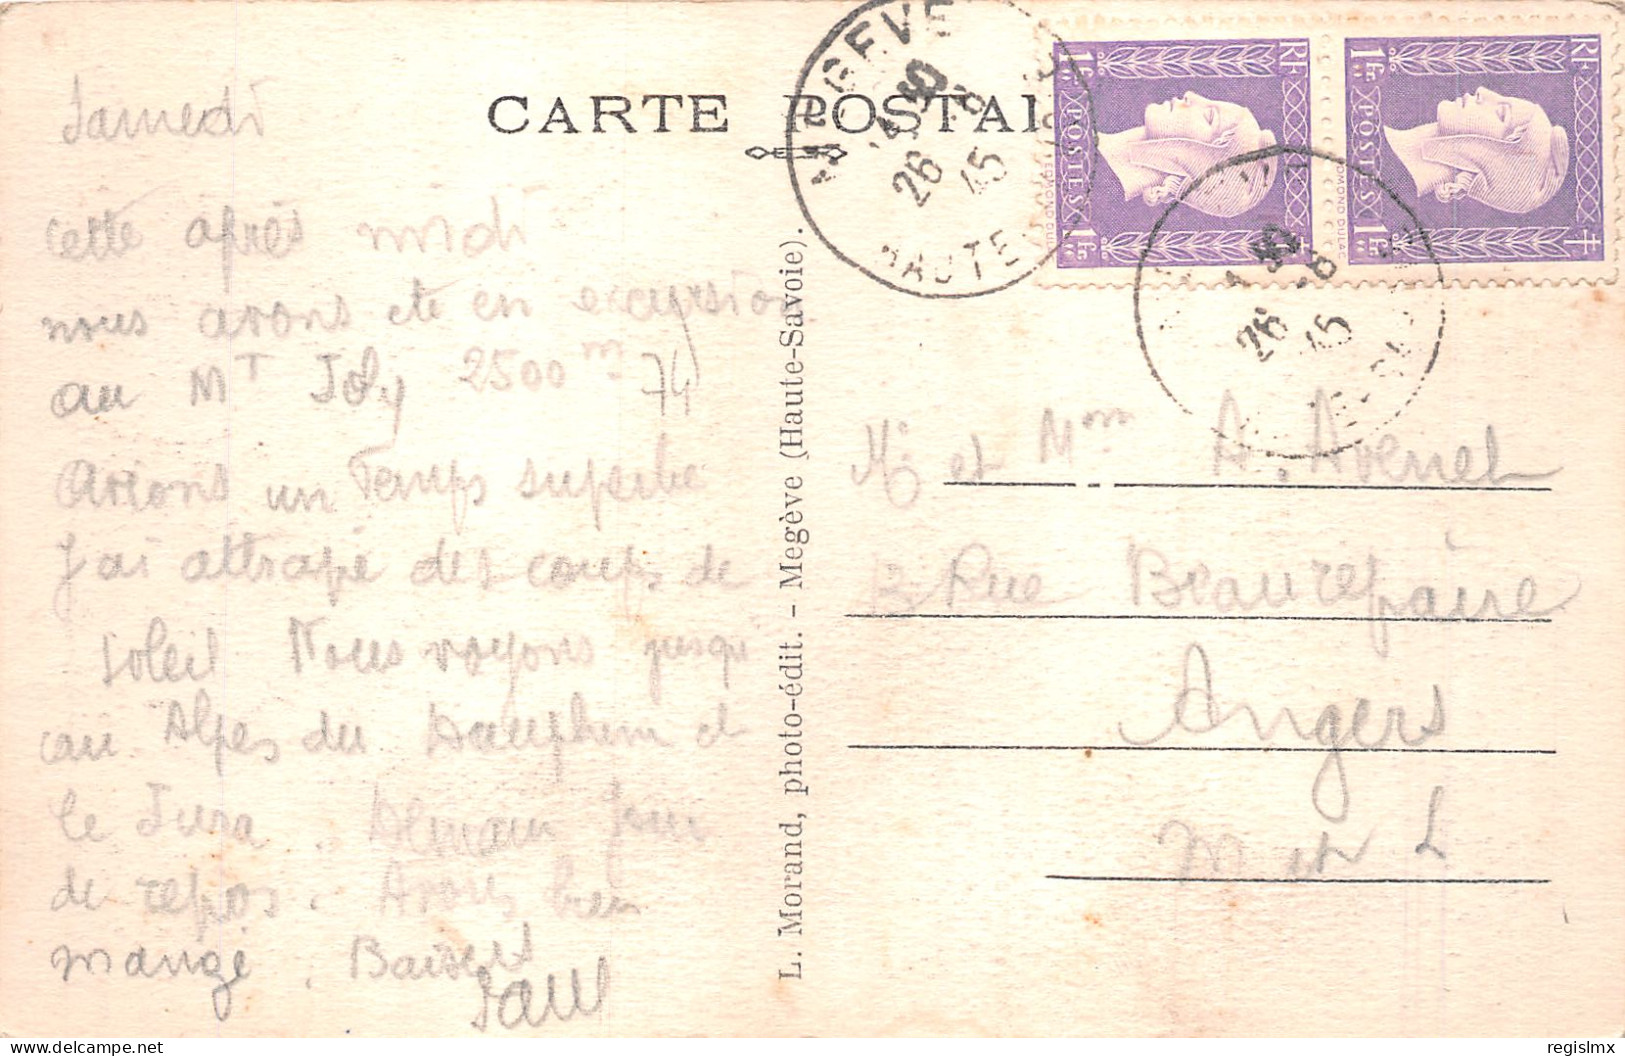 CARTE POSTALE
MEGEVE
26 - 8
45
HAUTE
RF
1Fr.
POSTES
EDMOND DULAC
RF
1Fr.
POSTES
EDMOND DULAC
26 8
45
Samedi
Cette après midi
nous avons été en excursion
au MT Joly 2500m
74
Avions un Temps superbe
J'ai attrapé des coups de
soleil Nous voyons jusqu'
au Alpes du Dauphiné et
le Jura. Demain jour
de repos. Avons bien
mangé. Baisers
Paul
L. Morand, photo-édit. - Megève (Haute-Savoie).
Mr et Mme A. Avenel
12 Rue Beaurepaire
Angers
M et L
delcampe.net
regislmx